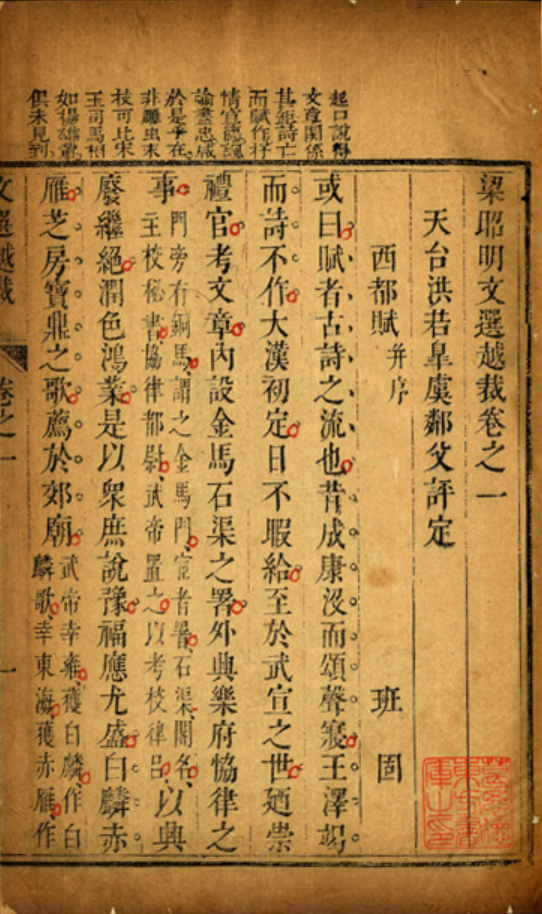 起口說得
文章關係
甚鉅詩亡
而賦作抒
情宣德諷
諭盡忠咸
於是乎在
非雕虫末
技可比宋
玉司馬相
如揚雄輩
俱未見到
梁昭明文選越裁卷之一
天台洪若臯虞鄰父評定
西都賦 并序 班固
或曰賦者古詩之流也昔成康沒而頌聲寢王澤竭
而詩不作大漢初定日不暇給至於武宣之世廼崇
禮官考文章內設金馬石渠之署外興樂府協律之
事 門旁有銅馬謂之金馬門宦者署石渠閣名
主校秘書協律都尉武帝置之以考校律呂 以興
廢繼絕潤色鴻業是以衆庶說豫福應尤盛白麟赤
雁芝房寶鼎之歌薦於郊廟 武帝幸雍獲白麟作白
麟歌幸東海獲赤雁作
文選越裁 卷之一 一